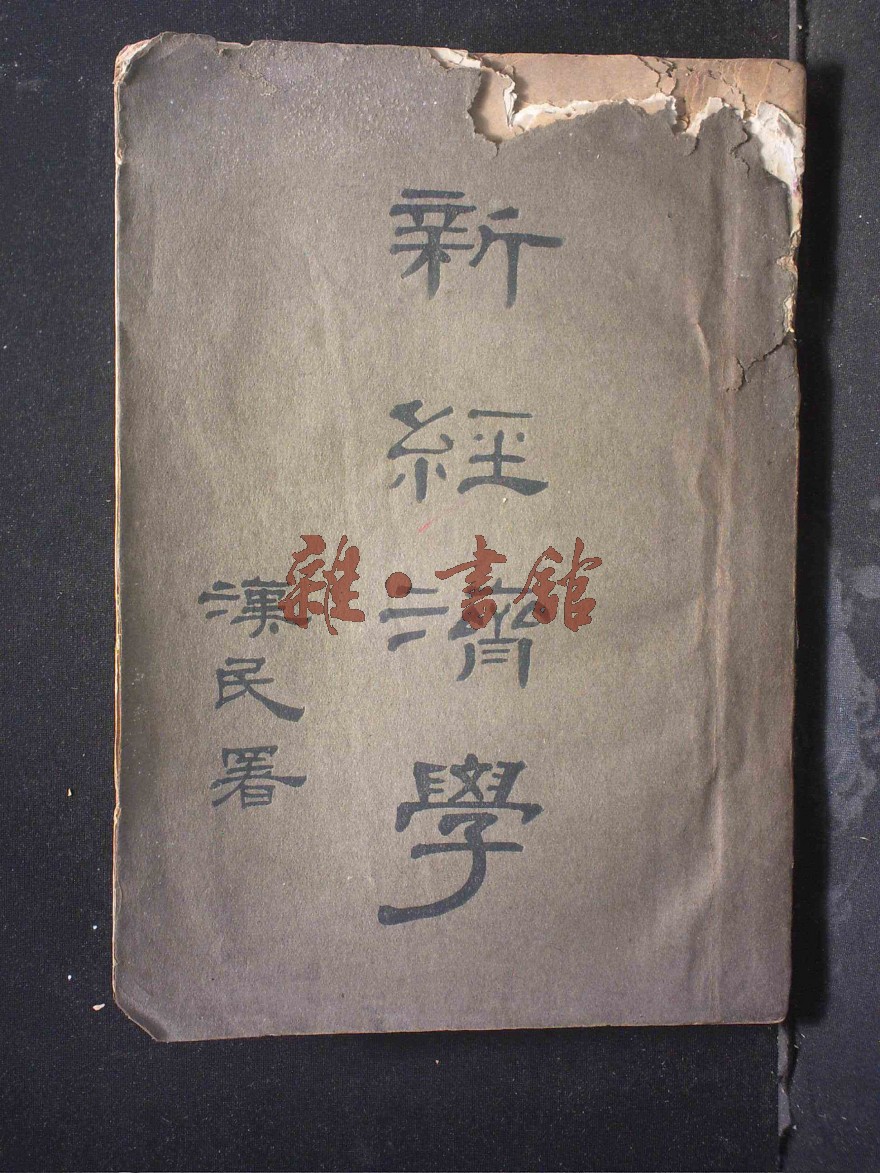 新經濟學
漢民署
雜·書館